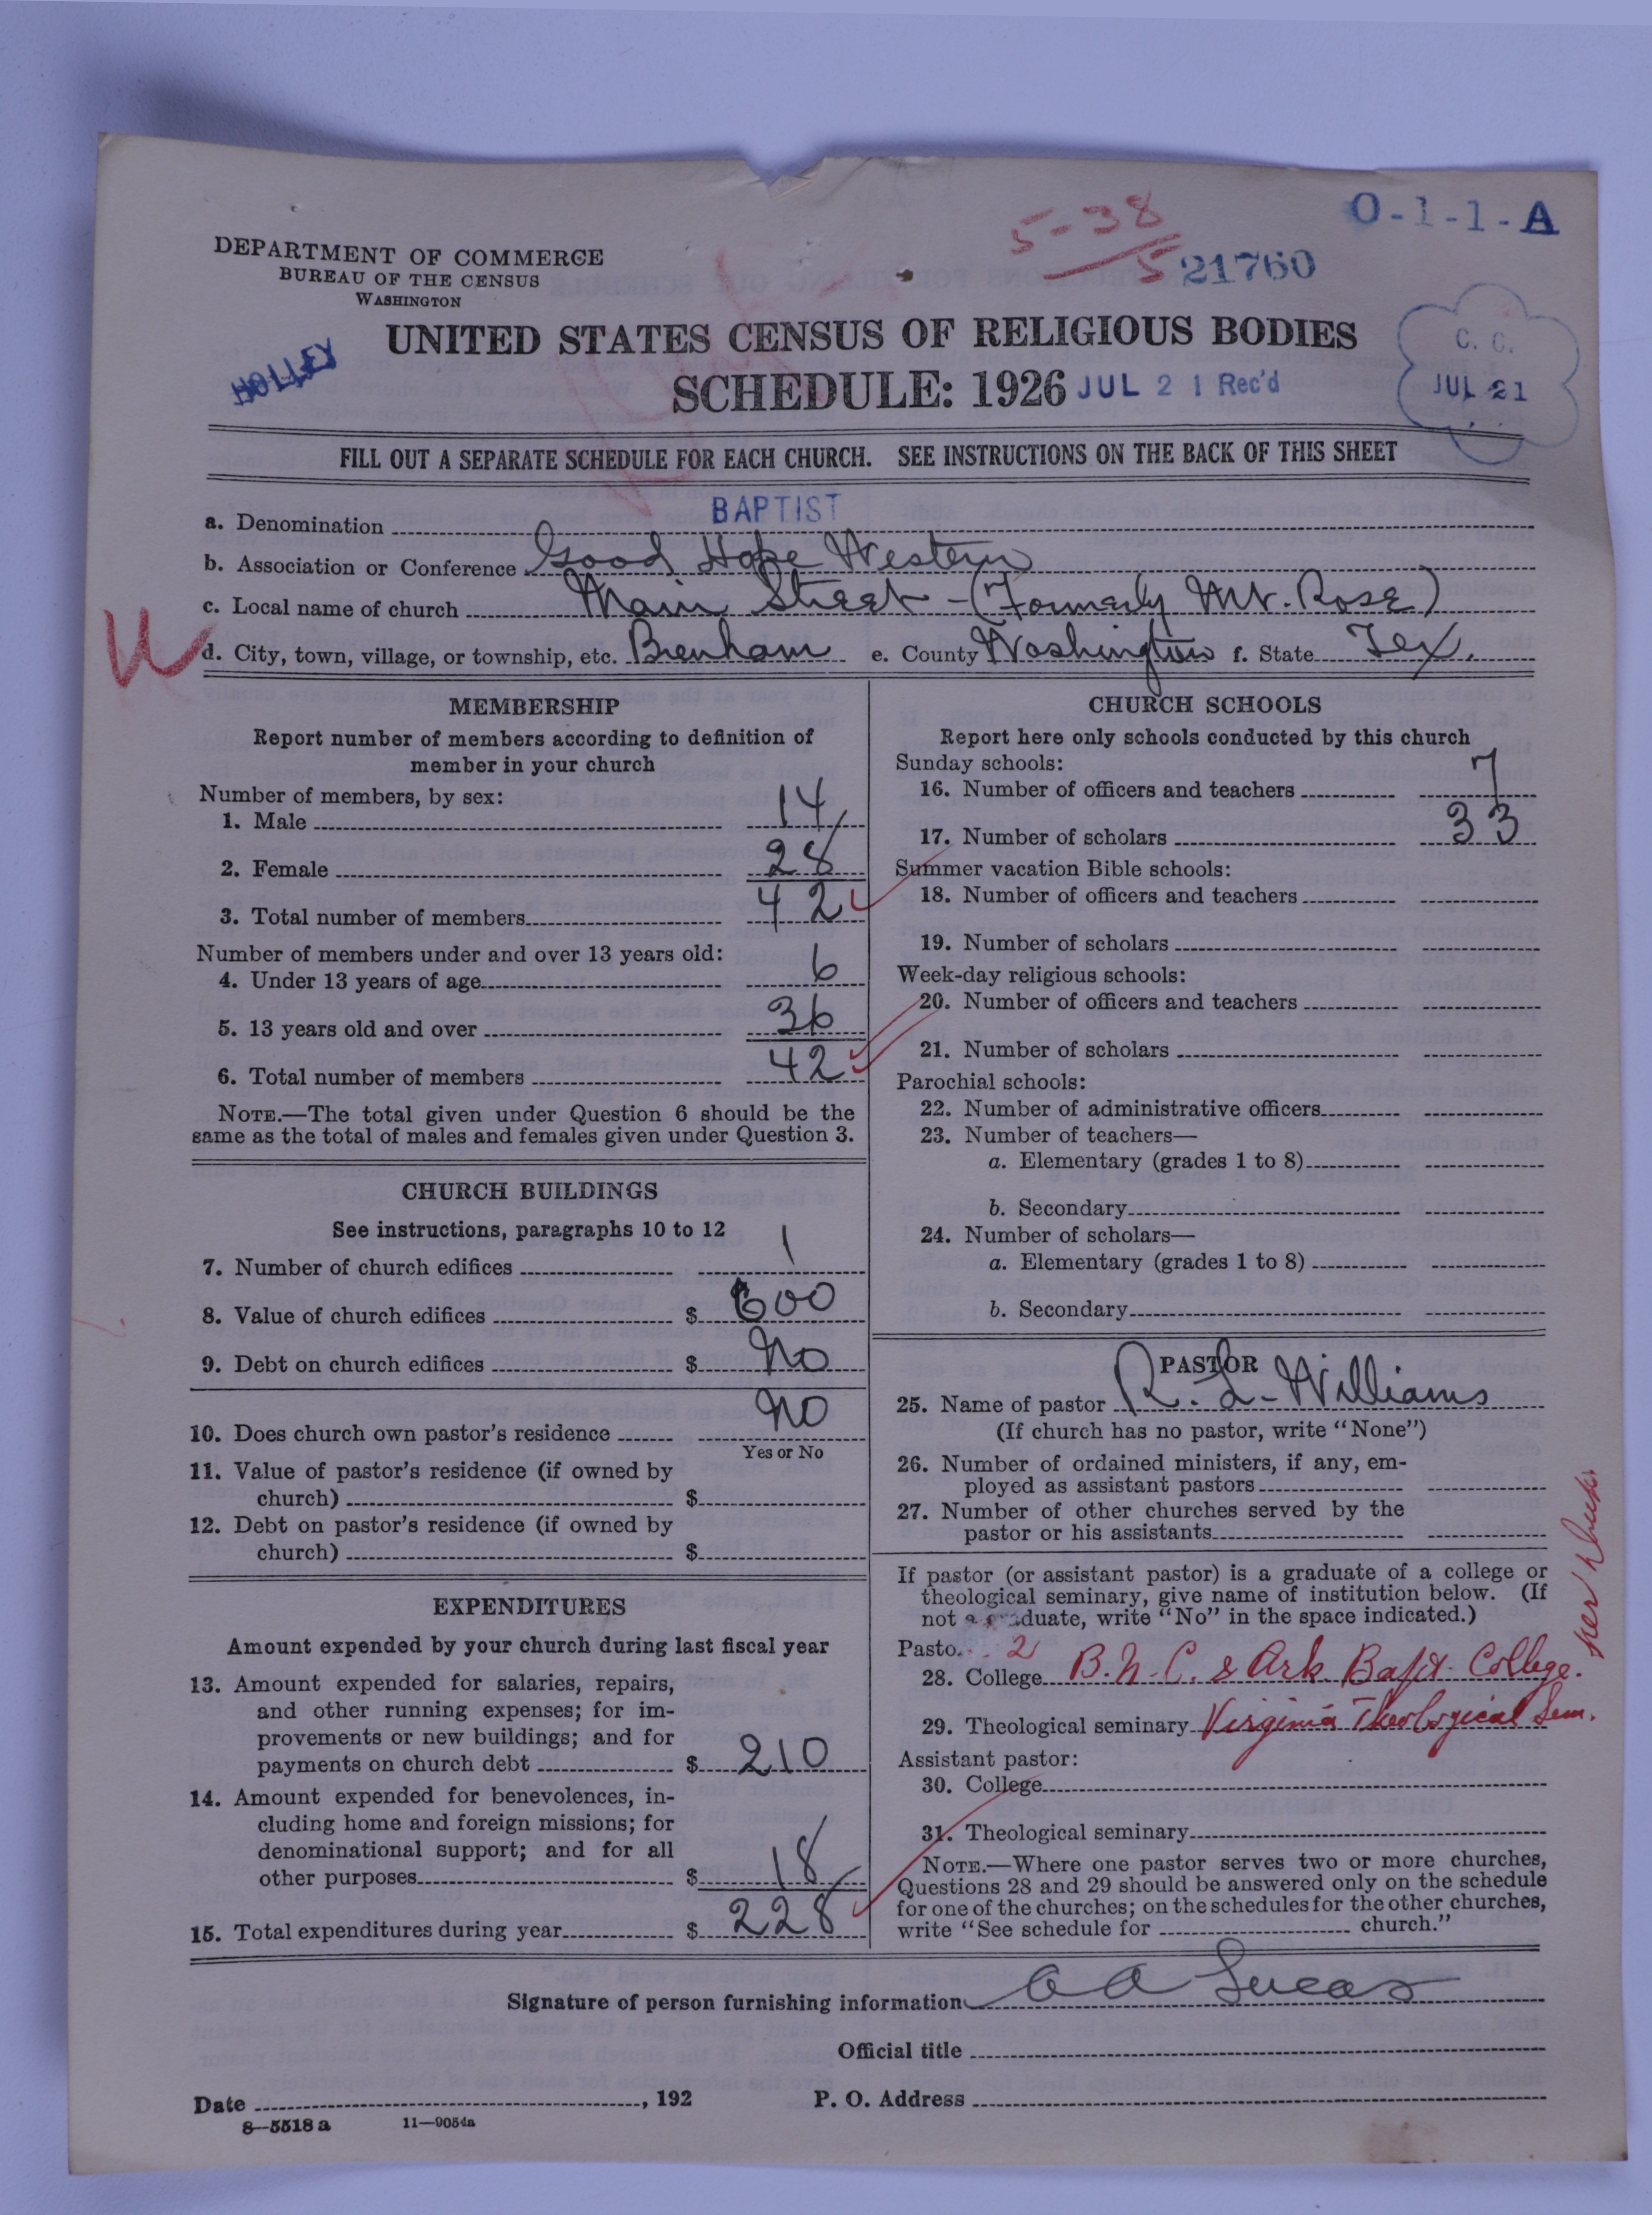 O-1-1-A
5-38
5
21760
DEPARTMENT OF COMMERCE
BUREAU OF THE CENSUS
WASHINGTON
HOLLEY
UNITED STATES CENSUS OF RELIGIOUS BODIES
SCHEDULE: 1926 JUL 21 Rec'd
C. C.
JUL 21
FILL OUT A SEPARATE SCHEDULE FOR EACH CHURCH. SEE INSTRUCTIONS ON THE BACK OF THIS SHEET
a. Denomination BAPTIST
b. Association or Conference Good Hope Western
c. Local name of church Main Street - (Formerly Mt. Rose)
d. City, town, village, or township, etc. Brenham e. County Washington f. State Tex.
MEMBERSHIP
Report number of members according to definition of
member in your church
Number of members, by sex:
1. Male 14
2. Female 28
3. Total number of members 42
Number of members under and over 13 years old:
4. Under 13 years of age 6
5. 13 years old and over 36
6. Total number of members 42
NOTE.—The total given under Question 6 should be the
same as the total of males and females given under Question 3.
CHURCH BUILDINGS
See instructions, paragraphs 10 to 12
7. Number of church edifices 1
8. Value of church edifices $ 600
9. Debt on church edifices $ No
10. Does church own pastor's residence No
Yes or No
11. Value of pastor's residence (if owned by
church) $
12. Debt on pastor's residence (if owned by
church) $
EXPENDITURES
Amount expended by your church during last fiscal year
13. Amount expended for salaries, repairs,
and other running expenses; for im-
provements or new buildings; and for
payments on church debt $ 210
14. Amount expended for benevolences, in-
cluding home and foreign missions; for
denominational support; and for all
other purposes $ 18
15. Total expenditures during year $ 228
CHURCH SCHOOLS
Report here only schools conducted by this church
Sunday schools:
16. Number of officers and teachers 7
17. Number of scholars 33
Summer vacation Bible schools:
18. Number of officers and teachers
19. Number of scholars
Week-day religious schools:
20. Number of officers and teachers
21. Number of scholars
Parochial schools:
22. Number of administrative officers
23. Number of teachers—
a. Elementary (grades 1 to 8)
b. Secondary
24. Number of scholars—
a. Elementary (grades 1 to 8)
b. Secondary
PASTOR
25. Name of pastor R. L. Williams
(If church has no pastor, write "None")
26. Number of ordained ministers, if any, em-
ployed as assistant pastors
27. Number of other churches served by the
pastor or his assistants
If pastor (or assistant pastor) is a graduate of a college or
theological seminary, give name of institution below. (If
not a graduate, write "No" in the space indicated.)
Pasto 2
28. College B.N.C. & Ark Bapt. College.
29. Theological seminary Virginia Theological Sem.
Assistant pastor:
30. College
31. Theological seminary
NOTE.—Where one pastor serves two or more churches,
Questions 28 and 29 should be answered only on the schedule
for one of the churches; on the schedules for the other churches,
write "See schedule for church."
Signature of person furnishing information A A Lucas
Official title
Date , 192 P. O. Address
8—5518 a 11—9054a